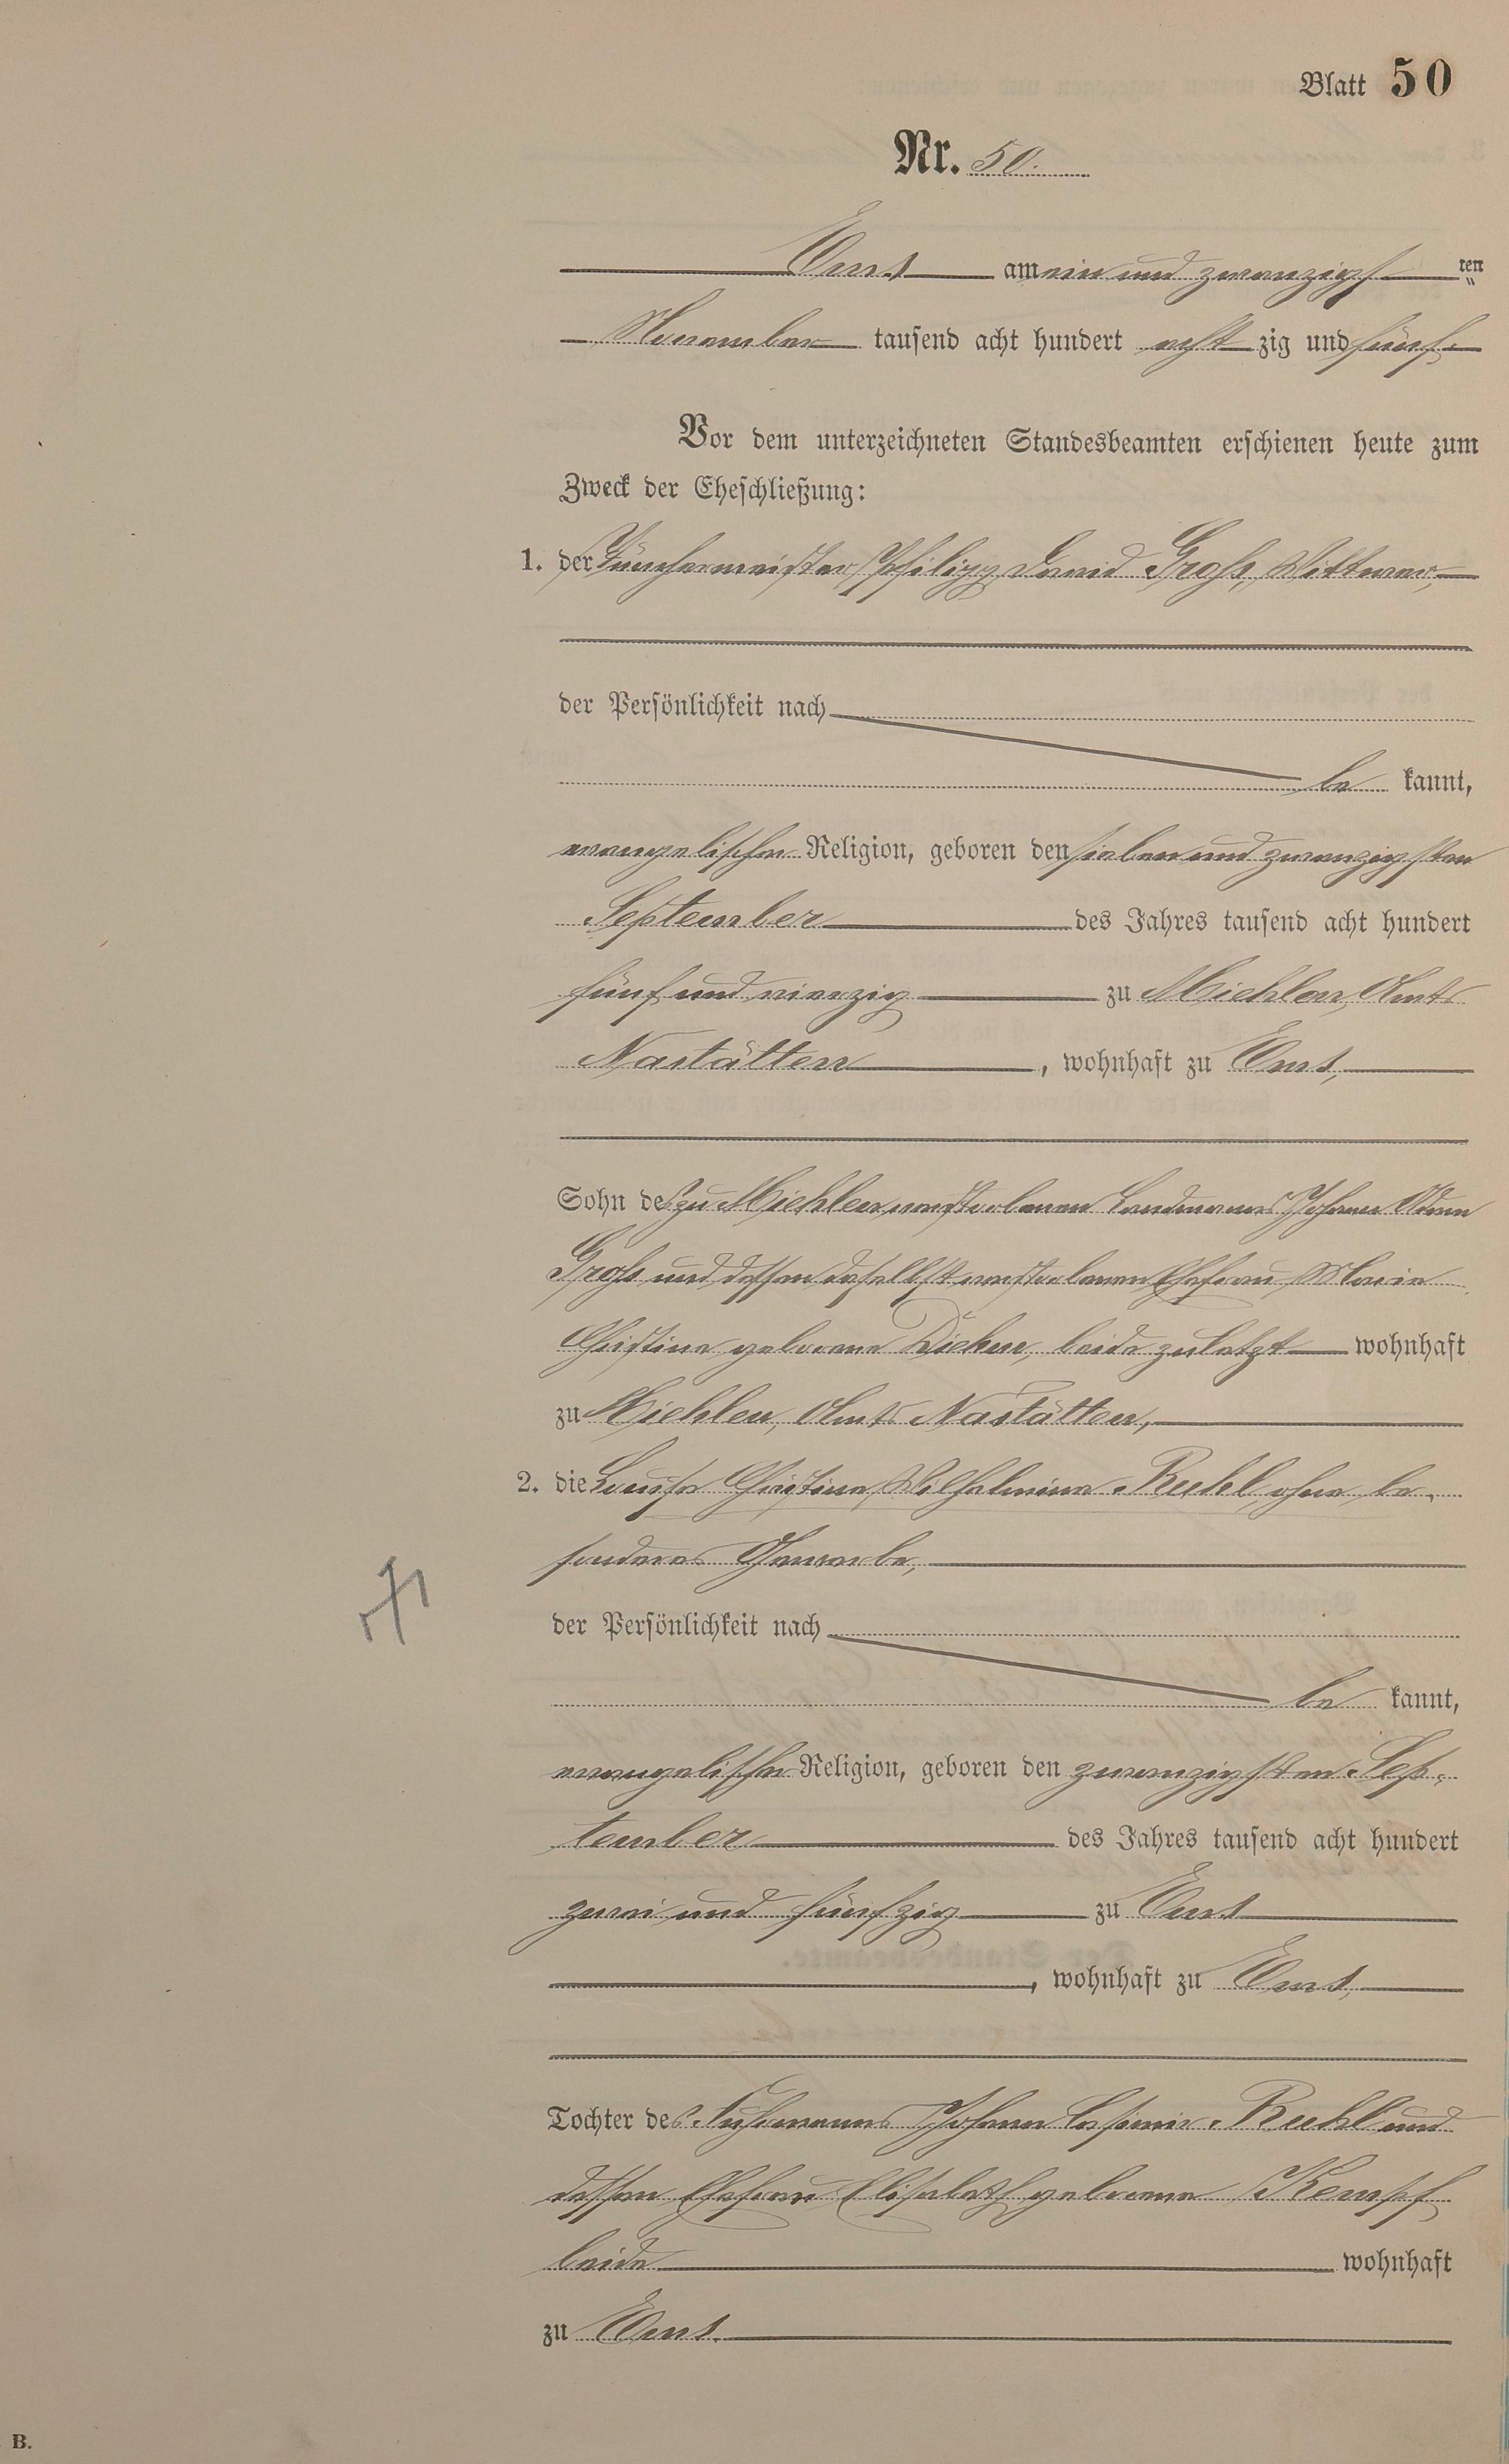 Blatt 50
Nr. 50.
Ems am ein und zwanzigst ten
November tausend acht hundert acht zig und fünf.
Vor dem unterzeichneten Standesbeamten erschienen heute zum
Zweck der Eheschließung:
1. der Tünchermeister Philipp David Groß, Wittwer,
der Persönlichkeit nach
be kannt,
evangelischer Religion, geboren den sieben und zwanzigsten
September des Jahres tausend acht hundert
fünf und vierzig zu Miehlen, Amts
Nastätten, wohnhaft zu Ems,
Sohn des zu Miehlen verstorbenen Landmanns Johann Adam
Groß und dessen daselbst verstorbenen Ehefrau Marie
Christine geborene, beide zuletzt wohnhaft
zu Miehlen, Amts Nastätten,
2. die Louise Christine Wilhelmine Ruhl, ohne be-
sonderes Gewerbe,
der Persönlichkeit nach
be kannt,
evangelischer Religion, geboren den zwanzigsten Sep-
tember des Jahres tausend acht hundert
zwei und fünfzig zu Ems
, wohnhaft zu Ems,
Tochter des Fuhrmanns Johann Casimir Ruhl und
dessen Ehefrau Elisabeth geborene Kempf
beide wohnhaft
zu Ems.
B.